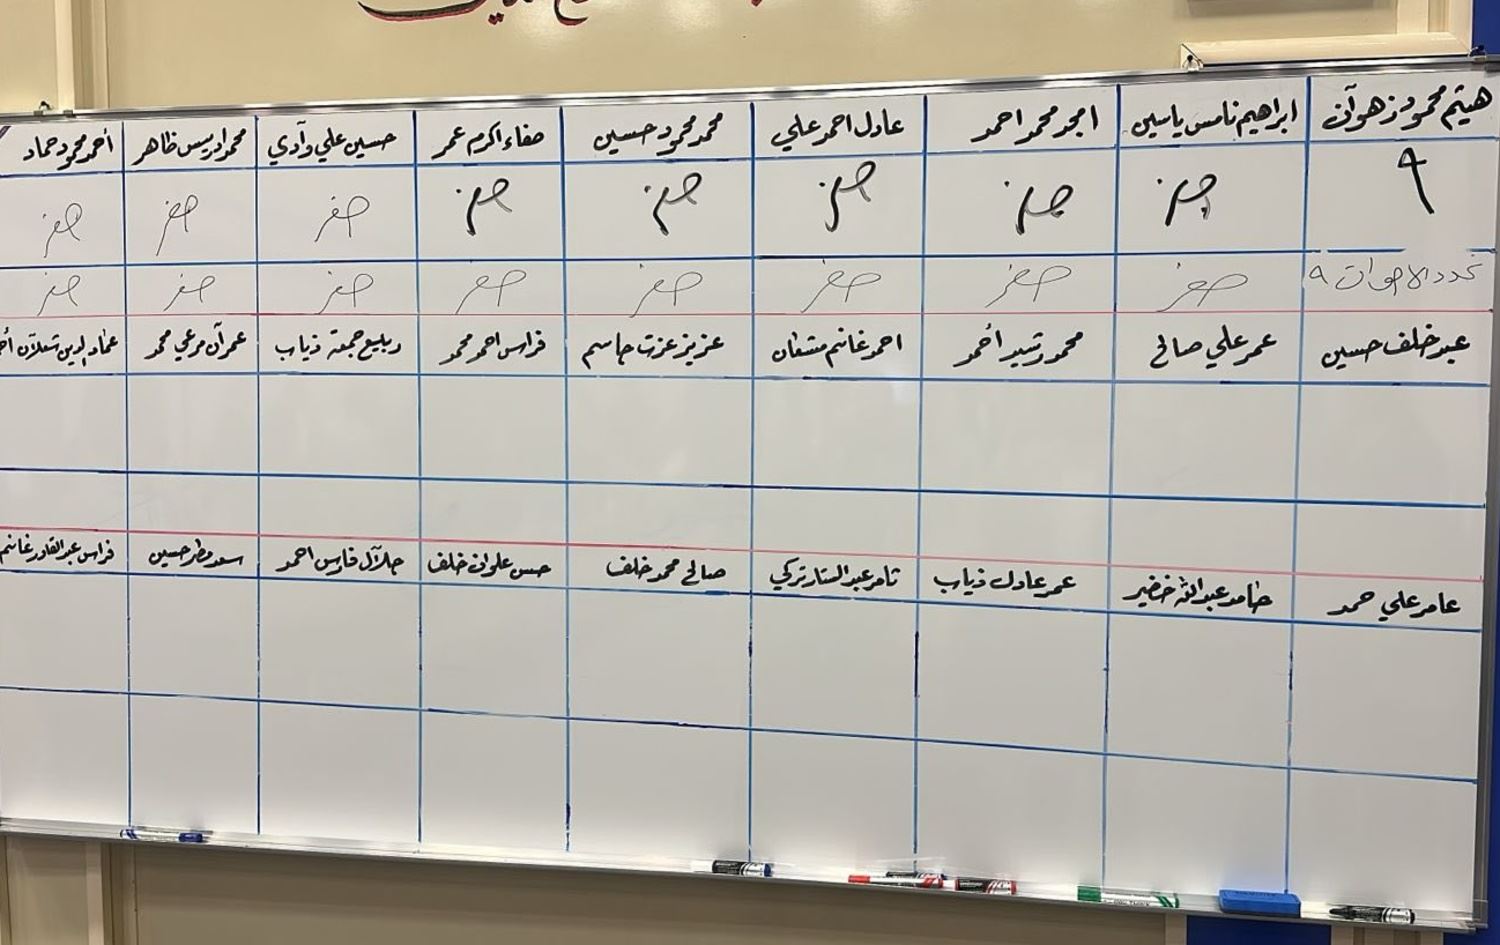 هيثم محمود زهوان
ابراهيم نامس ياسين
امجد محمد احمد
عادل احمد علي
محمد محمود حسين
صفاء اكرم عمر
حسين علي وادي
محمد ادريس ظاهر
أحمد محمود حماد
٩
صفر
صفر
صفر
صفر
صفر
صفر
صفر
صفر
عدد الاصوات ٩
صفر
صفر
صفر
صفر
صفر
صفر
صفر
صفر
عبد خلف حسين
عمر علي صالح
محمد رشيد أحمد
احمد غانم مشعان
عزيز عزت جاسم
فراس احمد محمد
ربيع جمعة ذياب
عمران مرعي محمد
عماد الدين شعلان
عامر علي حمد
حامد عبدالله خضير
عمر عادل ذياب
ثامر عبد الستار تركي
صالح محمد خلف
حسن علوان خلف
جلال فارس احمد
سعد مطر حسين
فراس عبد القادر غانم